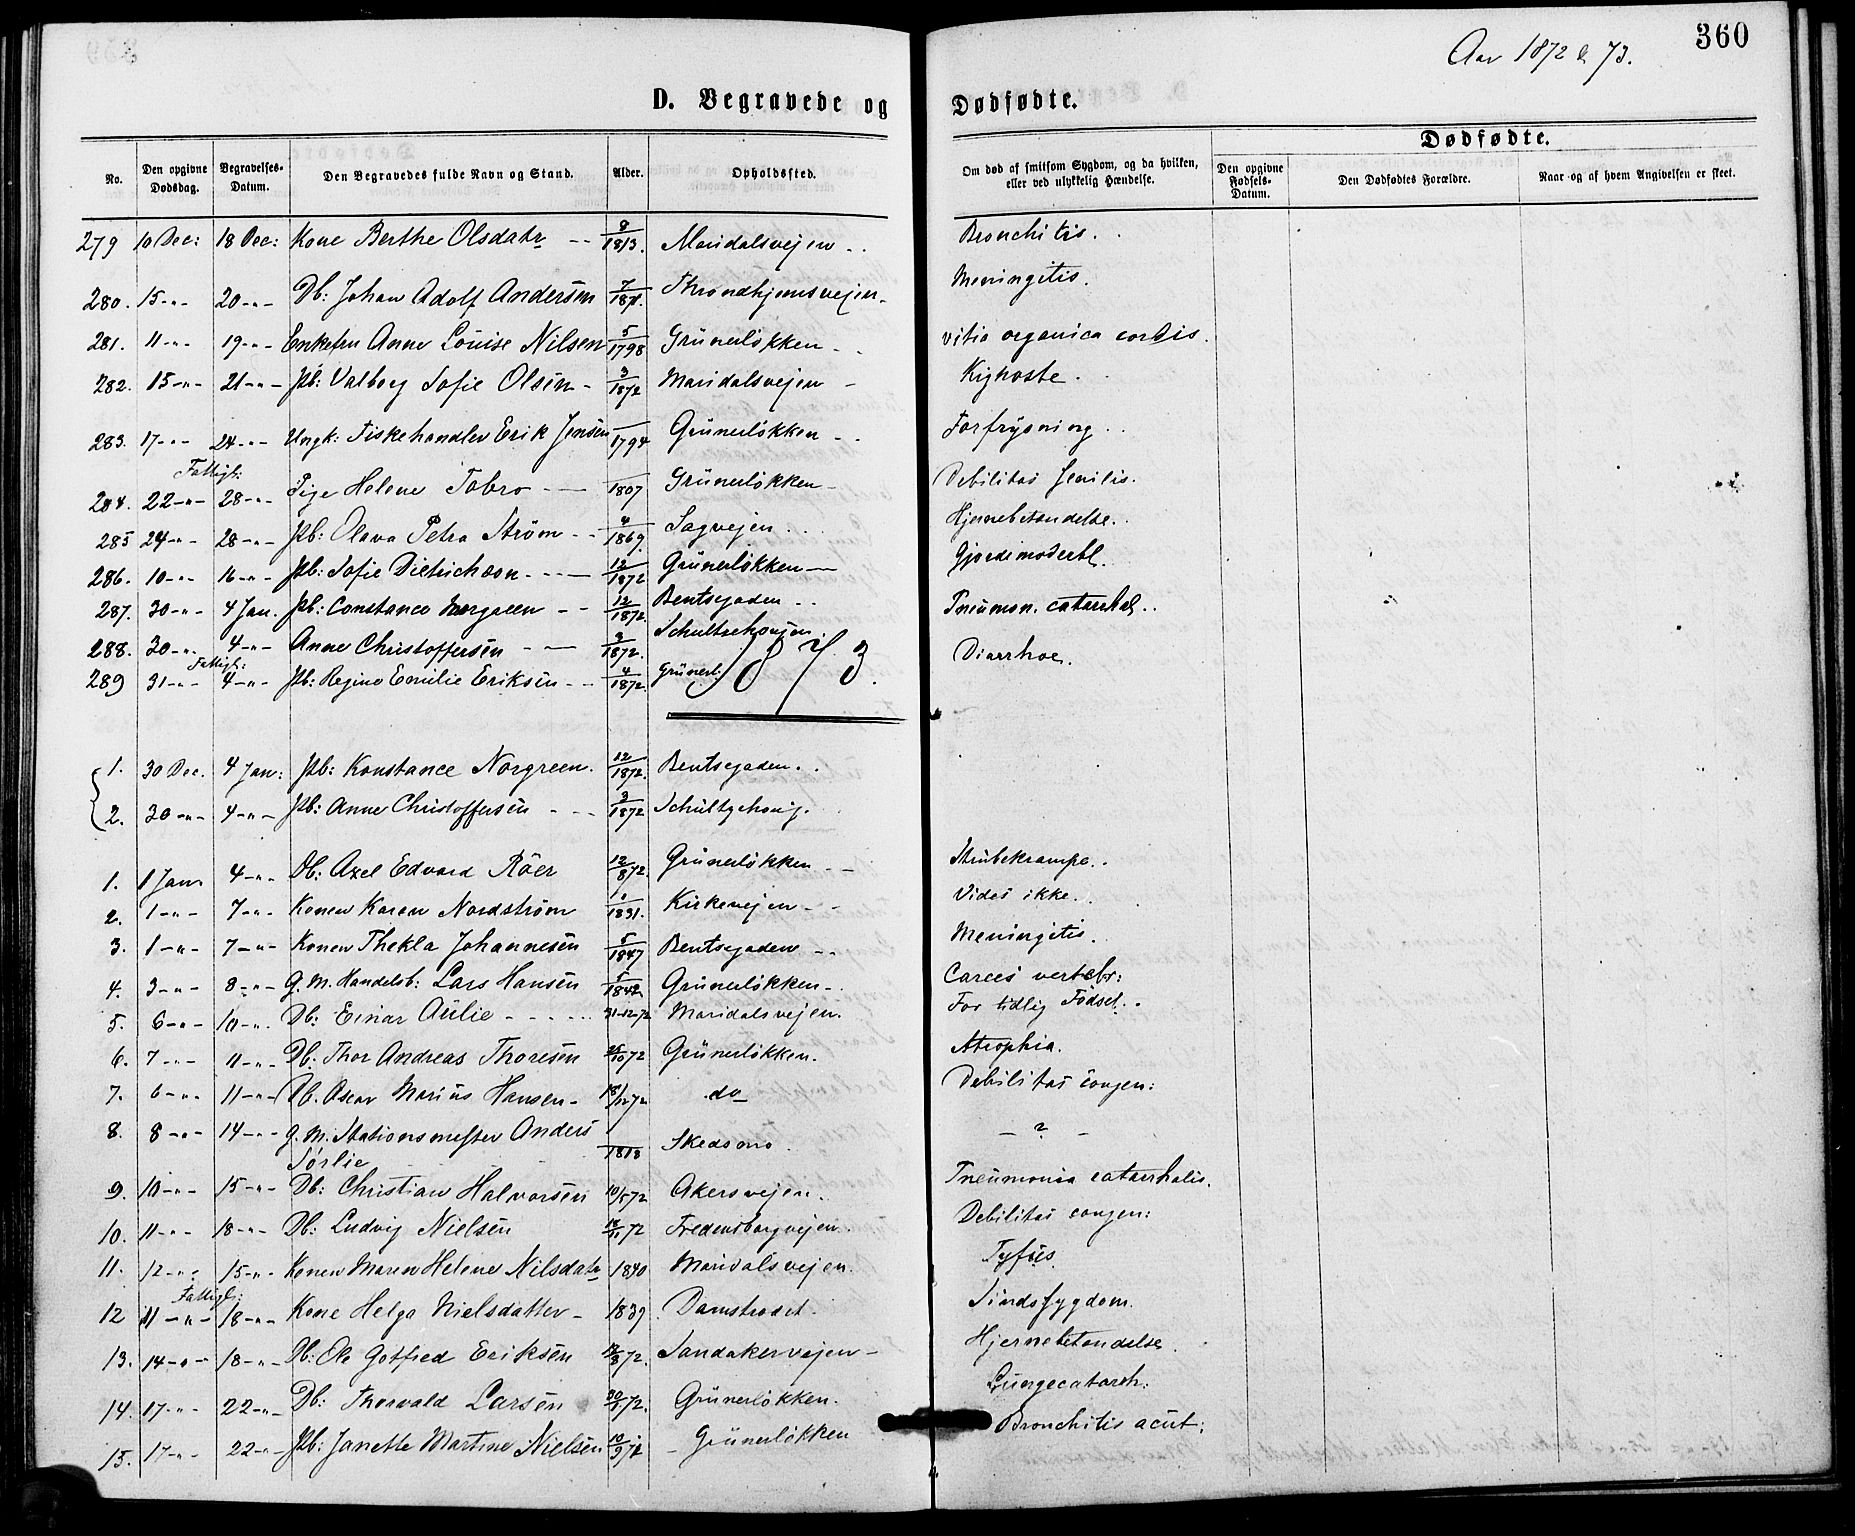 360
Aar 1872 & 73.
D. Begravede og Dødfødte.
Dødfødte.
No. Den opgivne Dødsdag. Begravelses-Datum. Den Begravedes fulde Navn og Stand. Alder. Opholdssted. Om død af smitsom Sygdom, og da hvilken, eller ved ulykkelig Hændelse. Den opgivne Fødsels-Datum. Den Dødfødtes Forældre. Naar og af hvem Angivelsen er skeet.
279 10 Dec: 18 Dec: Kone Berthe Olsdatr -- 8/1813. Maridalsvejen -. Bronchitis.
280. 15-"- 20-"- Db: Johan Adolf Andersen 7/1871. Throndhjemsvejen- Meningitis.
281. 11-"- 19-"- Enkefru Anne Louise Nilsen 5/1798 Grünerløkken - vitia organica cordis.
282. 15-"- 21-"- Pb: Valborg Sofie Olsen - 3/1872 Maridalsvejen - Kighoste.
283. 17-"- 24-"- Ungk: Fiskehandler Erik Jensen 1794 Grünerløkken - Forfrysning.
Fattigl:
284. 22-"- 28-"- Pige Helene Tobro --- 1807 Grünerløkken - Debilitas senilis.
285 24-"- 28-"- Pb: Olava Petra Strøm -- 4/1869. Sagvejen. Hjernebetændelse.
286. 10-"- 16-"- Pb: Sofie Dietrichson --- 12/1872 Grünerløkken -
287. 30-"- 4 Jan. Pb: Constance Norgreen -- 12/1872. Bentsegaden -. Pneumon. catarrhal.
288. 30-"- 4-"- Anne Christoffersen --- 3/1872. Diarrhoe.
Fattigl:
289 31-"- 4-"- Pb: Regine Emilie Eriksen -- 4/1872. Grünerl.
1873.
1. 30 Dec. 4 Jan: Pb: Konstance Norgreen. 12/1872. Bentsegaden.
2. 30-"- 4-"- Pb: Anne Christoffersen --- 3/1872
1. 1 Jan. 4-"- Db: Axel Edvard Röer 12/872. Grünerløkken -- Strubekrampe.
2. 1-"- 7-"- Konen Karen Nordstrøm 1831. Kirkevejen -- Vides ikke.
3. 1-"- 7-"- Konen Thekla Johannesen 5/1847 Bentsegaden -- Meningitis.
4. 3-"- 8-"- G. M. Handelsb: Lars Hansen 1842 Grünerløkken - Carees vertebr:
5. 6-"- 10-"- Db: Einar Aulie ---- 31-12-72 Maridalsvejen. For tidlig Fødsel.
6. 7-"- 11-"- Db: Thor Andreas Thoresen 25/10 72 Grünerløkken. Atrophia.
7. 6-"- 11-"- Db. Oscar Marius Hansen - 18/12 72 do Debilitas congen:
8. 8-"- 14-"- G. M. Stationsmester Anders Sørlie 1818 Skedsmo - ? -
9. 10-"- 15-"- Db: Christian Halvorsen 10/5 72 Akersvejen. Pneumonia catarrhalis.
10. 11-"- 18-"- Db: Ludvig Nielsen 18/11 72 Fredensborgvejen. Debilitas congen:
11. 12-"- 15-"- Konen Maren Helene Nilsdatr 1840 Maridalsvejen. Tyfus.
Fattigl:
12 11-"- 18-"- Kone Helga Nielsdatter - 1839. Damstredet. Sindssygdom.
13. 14-"- 18-"- Db: Ole Gotfred Eriksen 12/8 72. Sandakervejen - Hjernebetændelse.
14. 17-"- 22-"- Db: Thorvald Larsen 30/1 72. Grünerløkken. Lungecatarrh:
15. 17-"- 22-"- Pb: Janette Martine Nielsen 10/9 72 Grünerløkken Bronchitis acut: